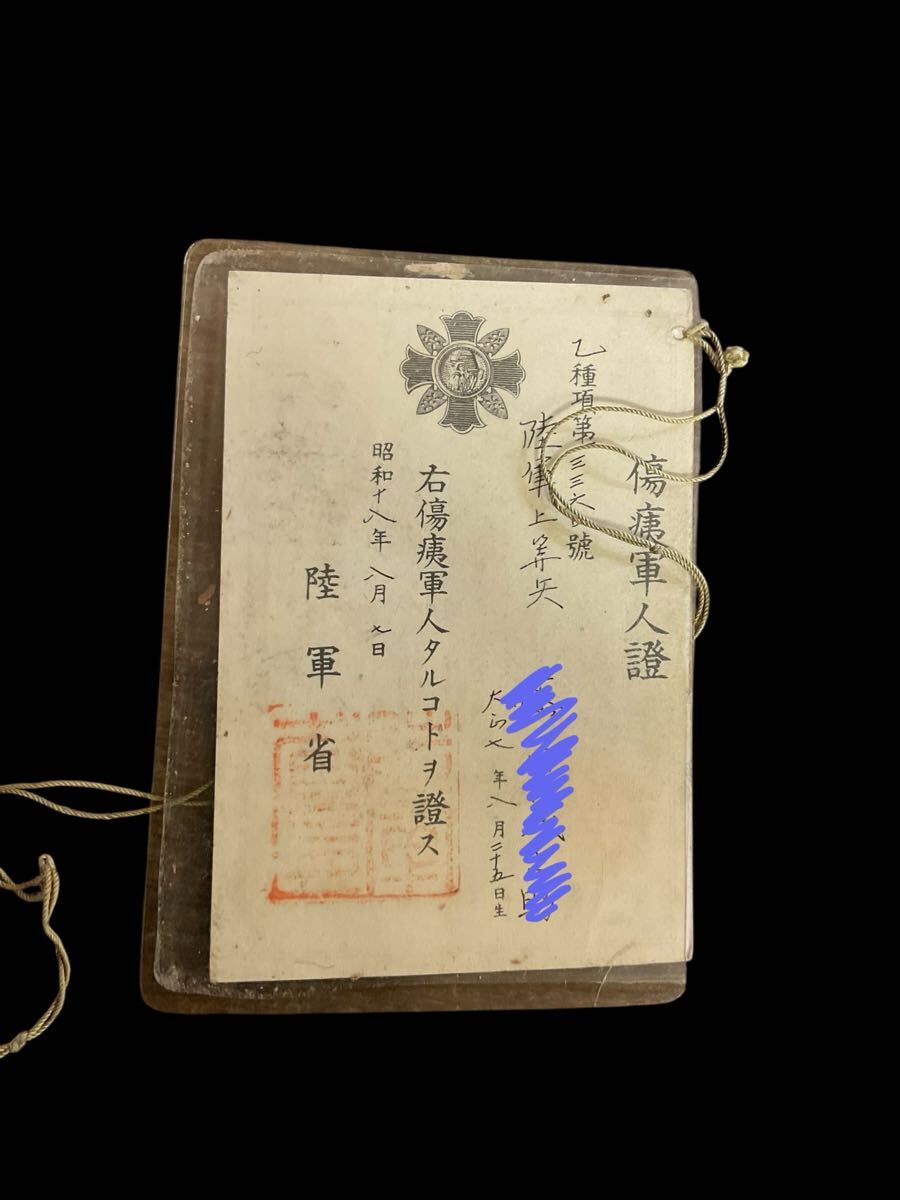 傷痍軍人證
乙種項第三三六號
陸軍上等兵
大正七年八月二十五日生
右傷痍軍人タルコトヲ證ス
昭和十八年八月七日
陸軍省